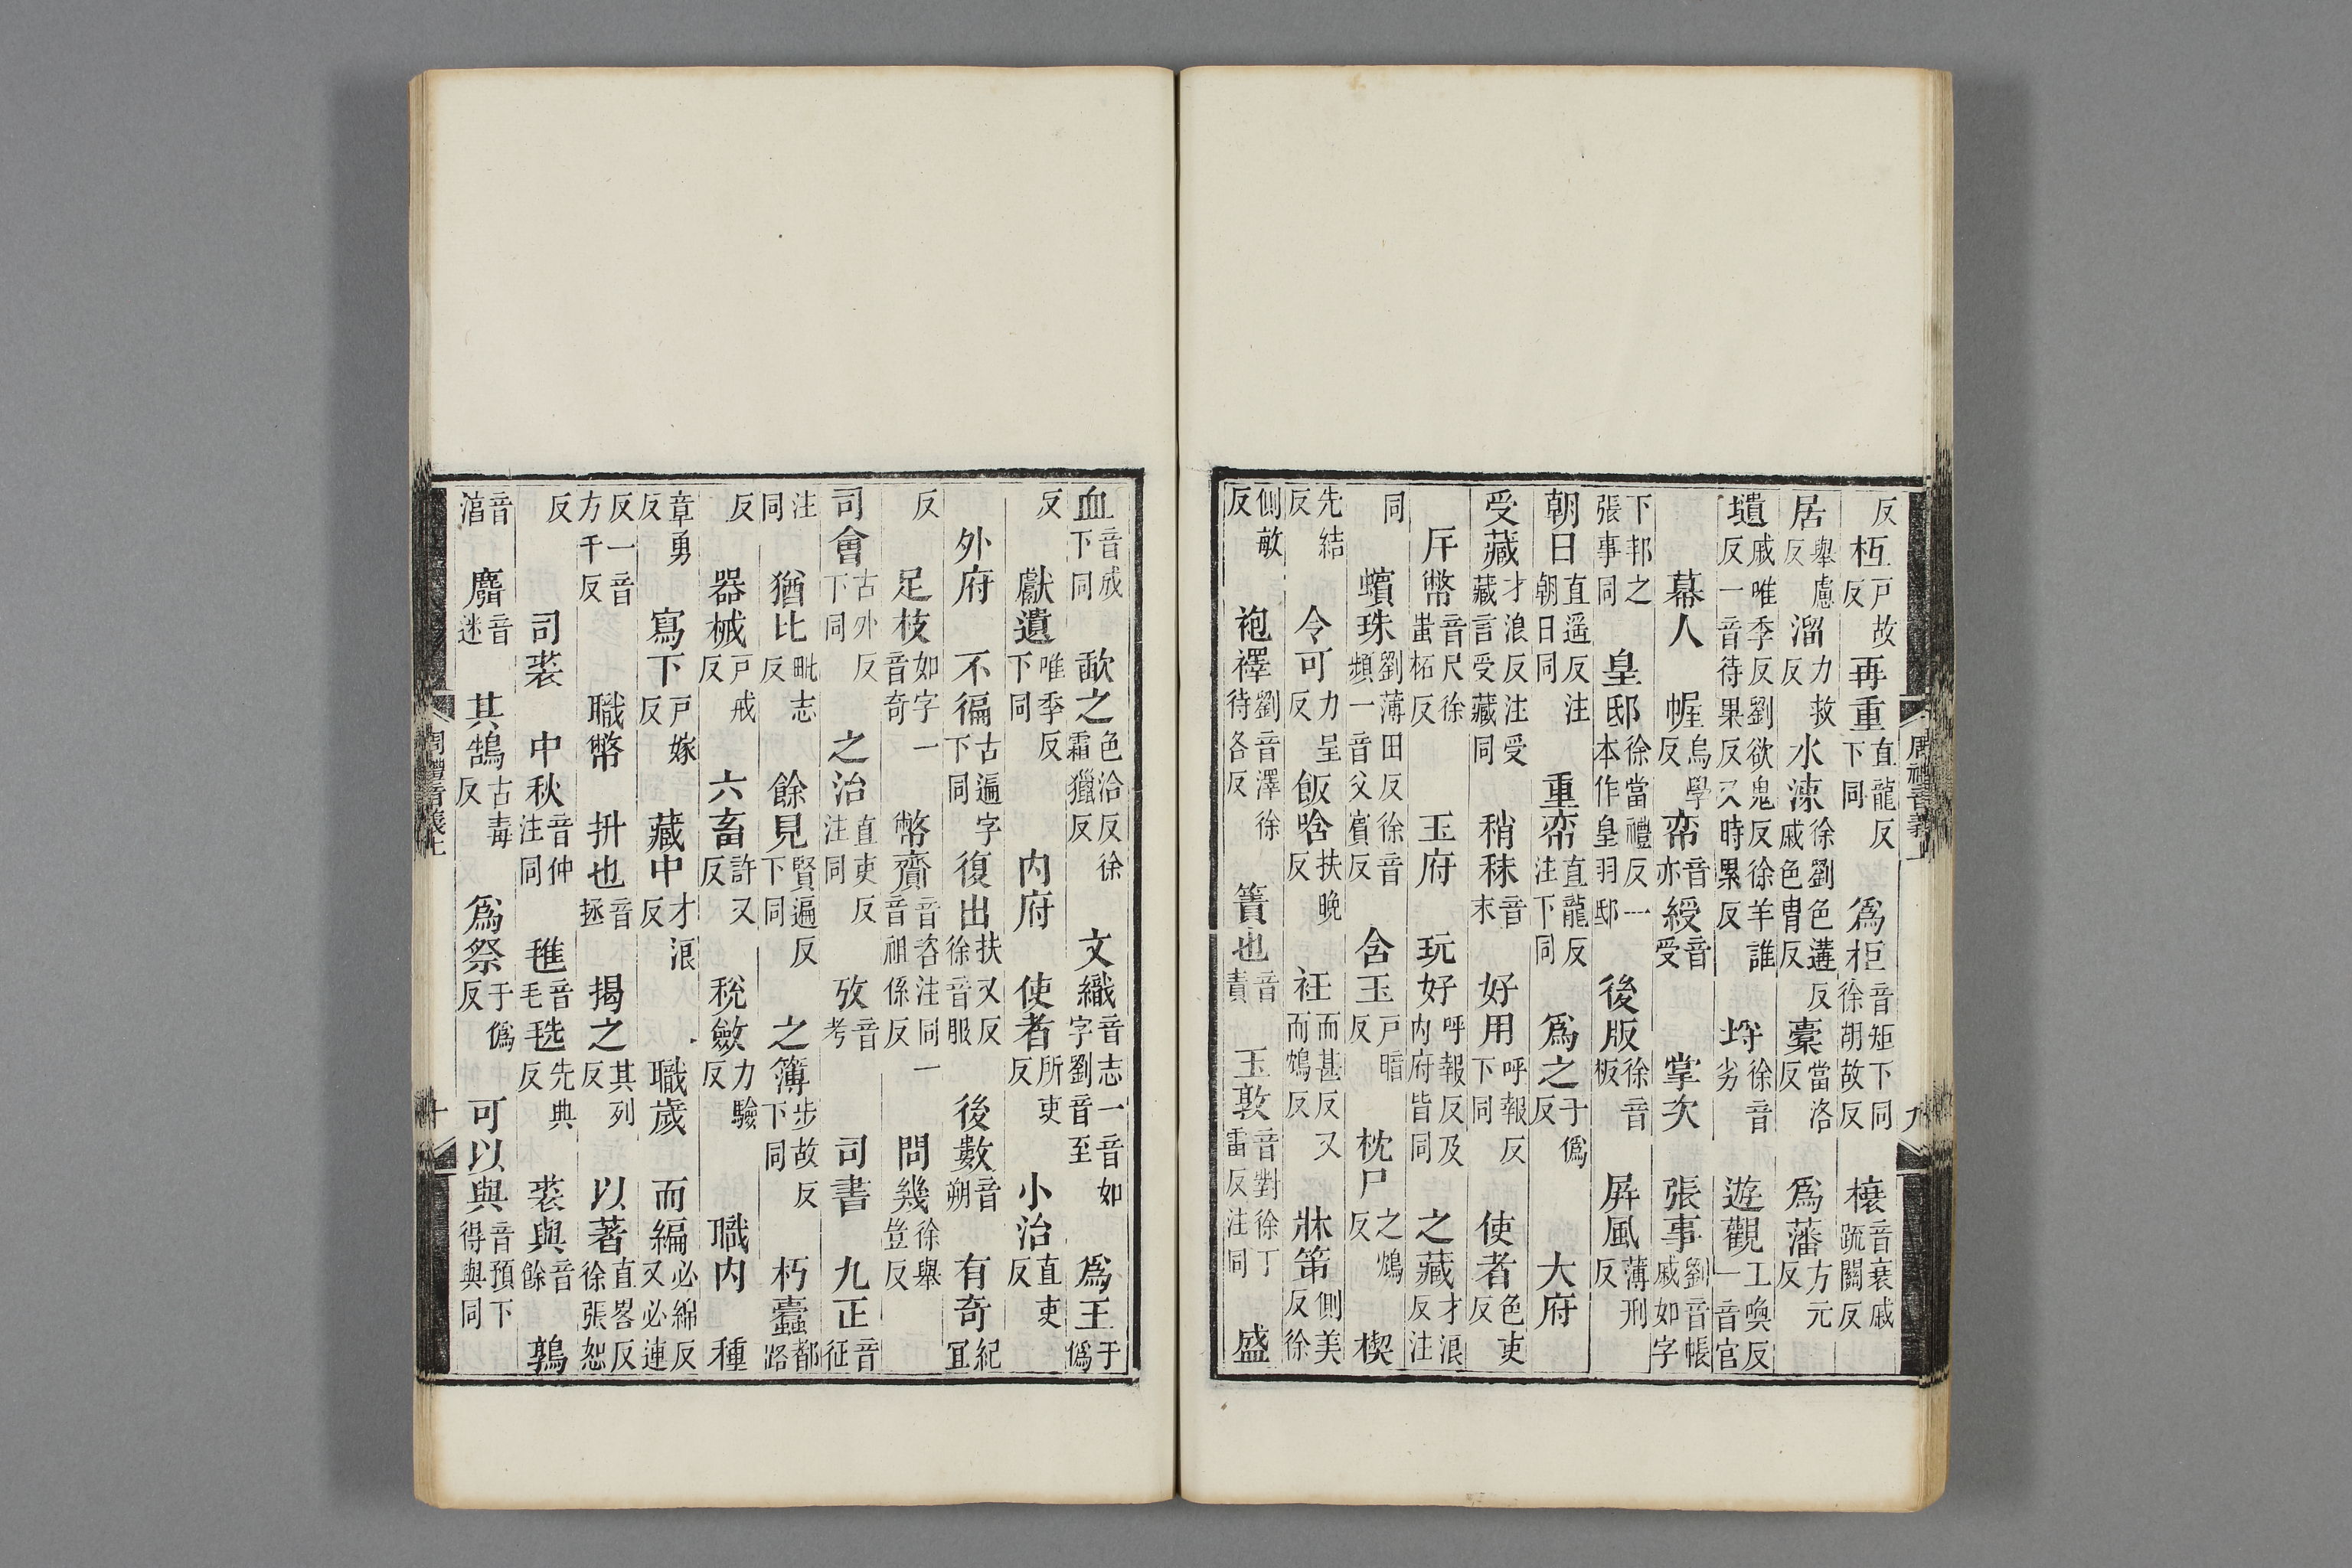 反 枑戸故反 再重直龍反下同 爲柜音矩下同徐胡故反 榱音衰戚䟽關反
居舉慮反 溜力救反 水涑徐劉色遘反戚色胄反 橐當洛反 爲藩方元反
壝戚唯季反劉欲鬼反徐羊誰反一音待果反又時累反 埒徐音劣 遊觀工喚反一音官
幕人 幄烏學反 帟音亦 綬音受 掌次 張事劉音帳戚如字
下邦之張事同 皇邸徐當禮反一本作皇羽邸 後版徐音板 屛風薄刑反
朝日直遥反注朝日同 重帟直龍反注下同 爲之于僞反 大府
受藏才浪反注受藏言受藏同 稍秣音末 好用呼報反下同 使者色吏反
斥幣音尺徐蚩柘反 玉府 玩好呼報反及内府皆同 之藏才浪反注
同 蠙珠劉薄田反徐音頻一音父賔反 含玉戸暗反 枕尸之鴆反 楔
先結反 令可力呈反 飯唅扶晚反 衽而甚反又而鴆反 牀笫側美反徐
側敏反 袍襗劉音澤徐待各反 簀也音責 玉敦音對徐丁雷反注同 盛
周禮音義上 九
血音成下同 歃之色洽反徐霜獵反 文織音志一音如字劉音至 爲王于僞
反 獻遺唯季反下同 内府 使者所吏反 小治直吏反
外府 不徧古遍字下同 復出扶又反徐音服 後數音朔 有奇紀宜
反 足枝如字一音奇 幣齎音咨注同一音祖係反 問幾徐舉豈反
司會古外反下同 之治直吏反注同 攷音考 司書 九正音征
注同 猶比毗志反 餘見賢遍反下同 之簿步故反下同 朽蠹都路
反 器械戸戒反 六畜許又反 稅斂力驗反 職内 種
章勇反 寫下戸嫁反 藏中才浪反 職歲 而編必綿反又必連
反一音方千反 職幣 拼也音拯 揭之其列反 以著直畧反徐張恕
反 司裘 中秋音仲注同 毨音毛毨先典反 裘與音餘 鶉
音㴫 麛音迷 其鵠古毒反 爲祭于僞反 可以與音預下得與同
周禮音義上 十